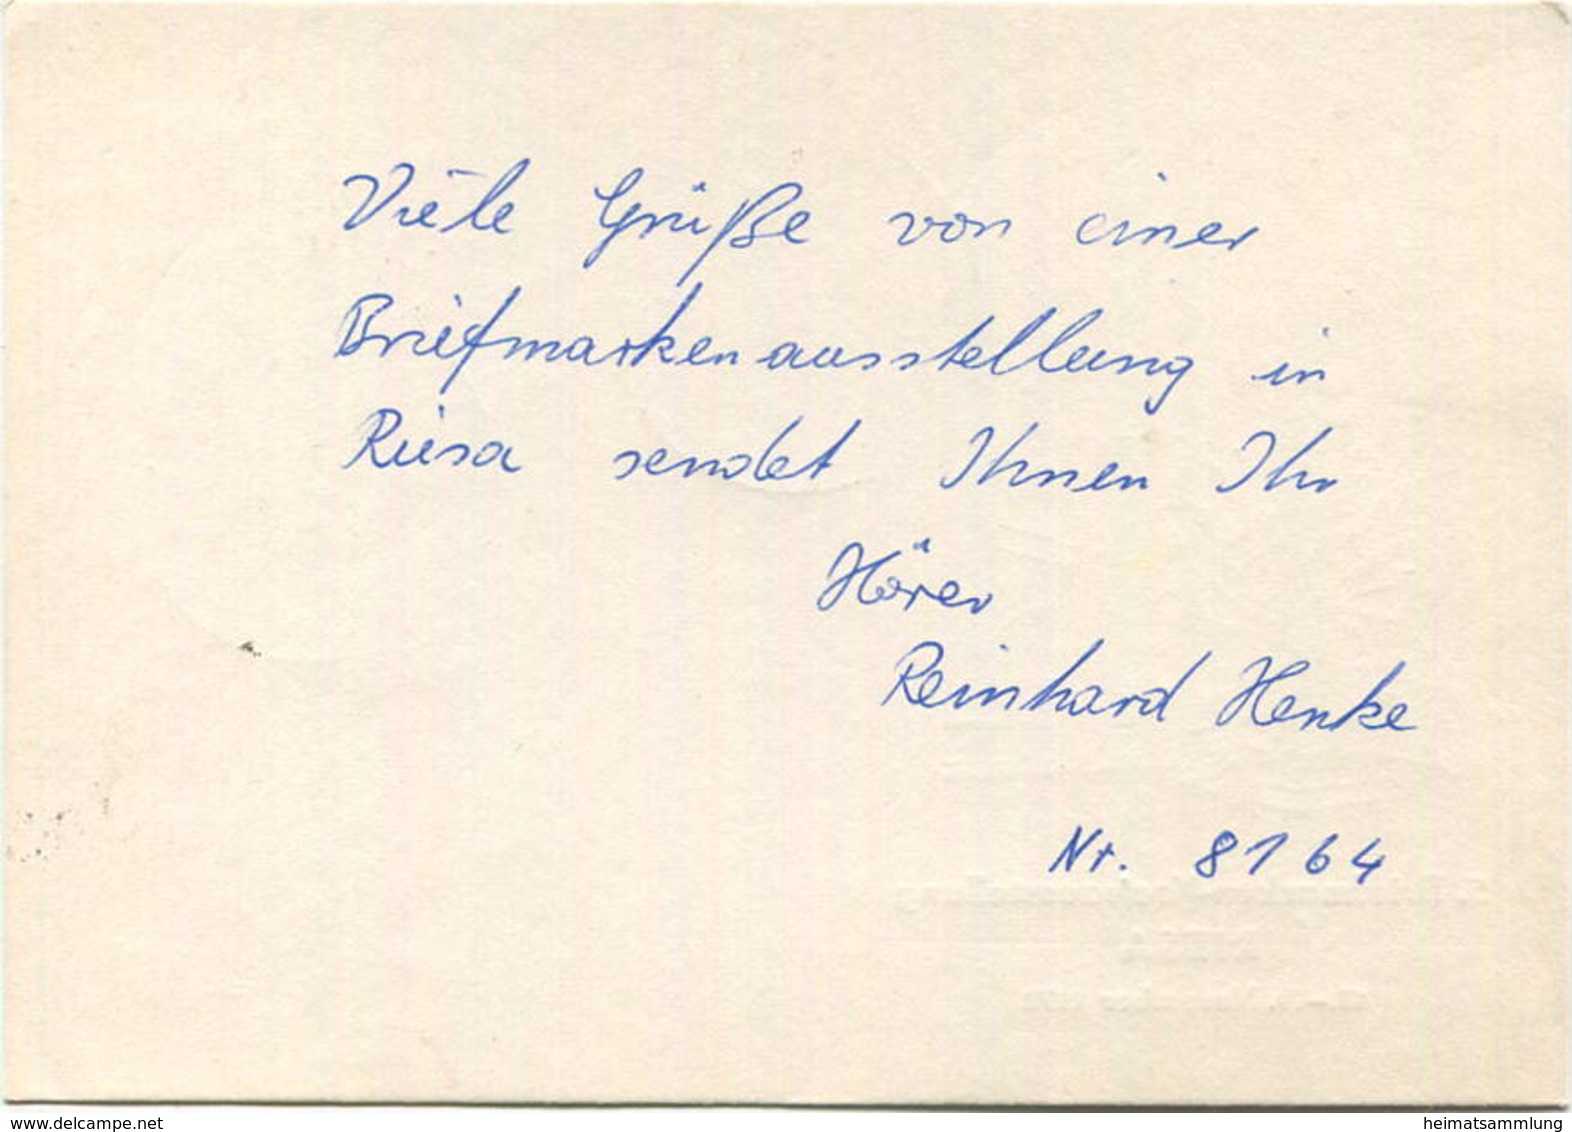 Viele Grüße von einer
Briefmarkenausstellung in
Riesa sendet Ihnen Ihr
Hörer
Reinhard Henke
Nr. 8164
www.delcampe.net
heimatsammlung